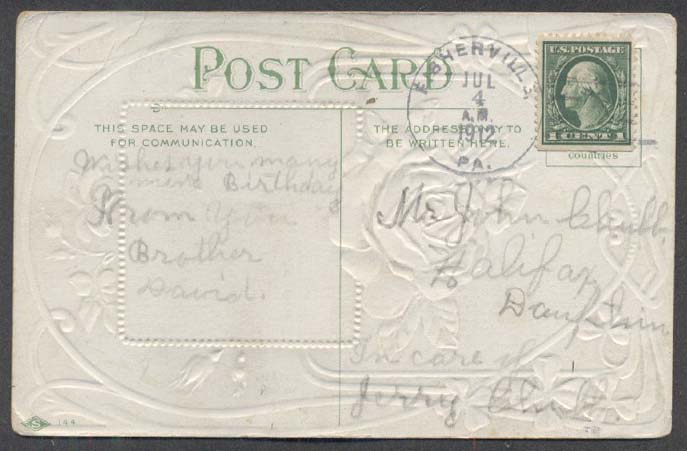 POST CARD
THIS SPACE MAY BE USED
FOR COMMUNICATION.
THE ADDRESS ONLY TO
BE WRITTEN HERE.
FISHERVILLE,
JUL
4
A.M.
1912
PA.
U.S. POSTAGE
1 CENT 1
countries
Wishes you many
more Birthday
From Your
Brother
David.
Mr John Chubb
Halifax
Dauphin
In care of
Jerry Chubb
S 144